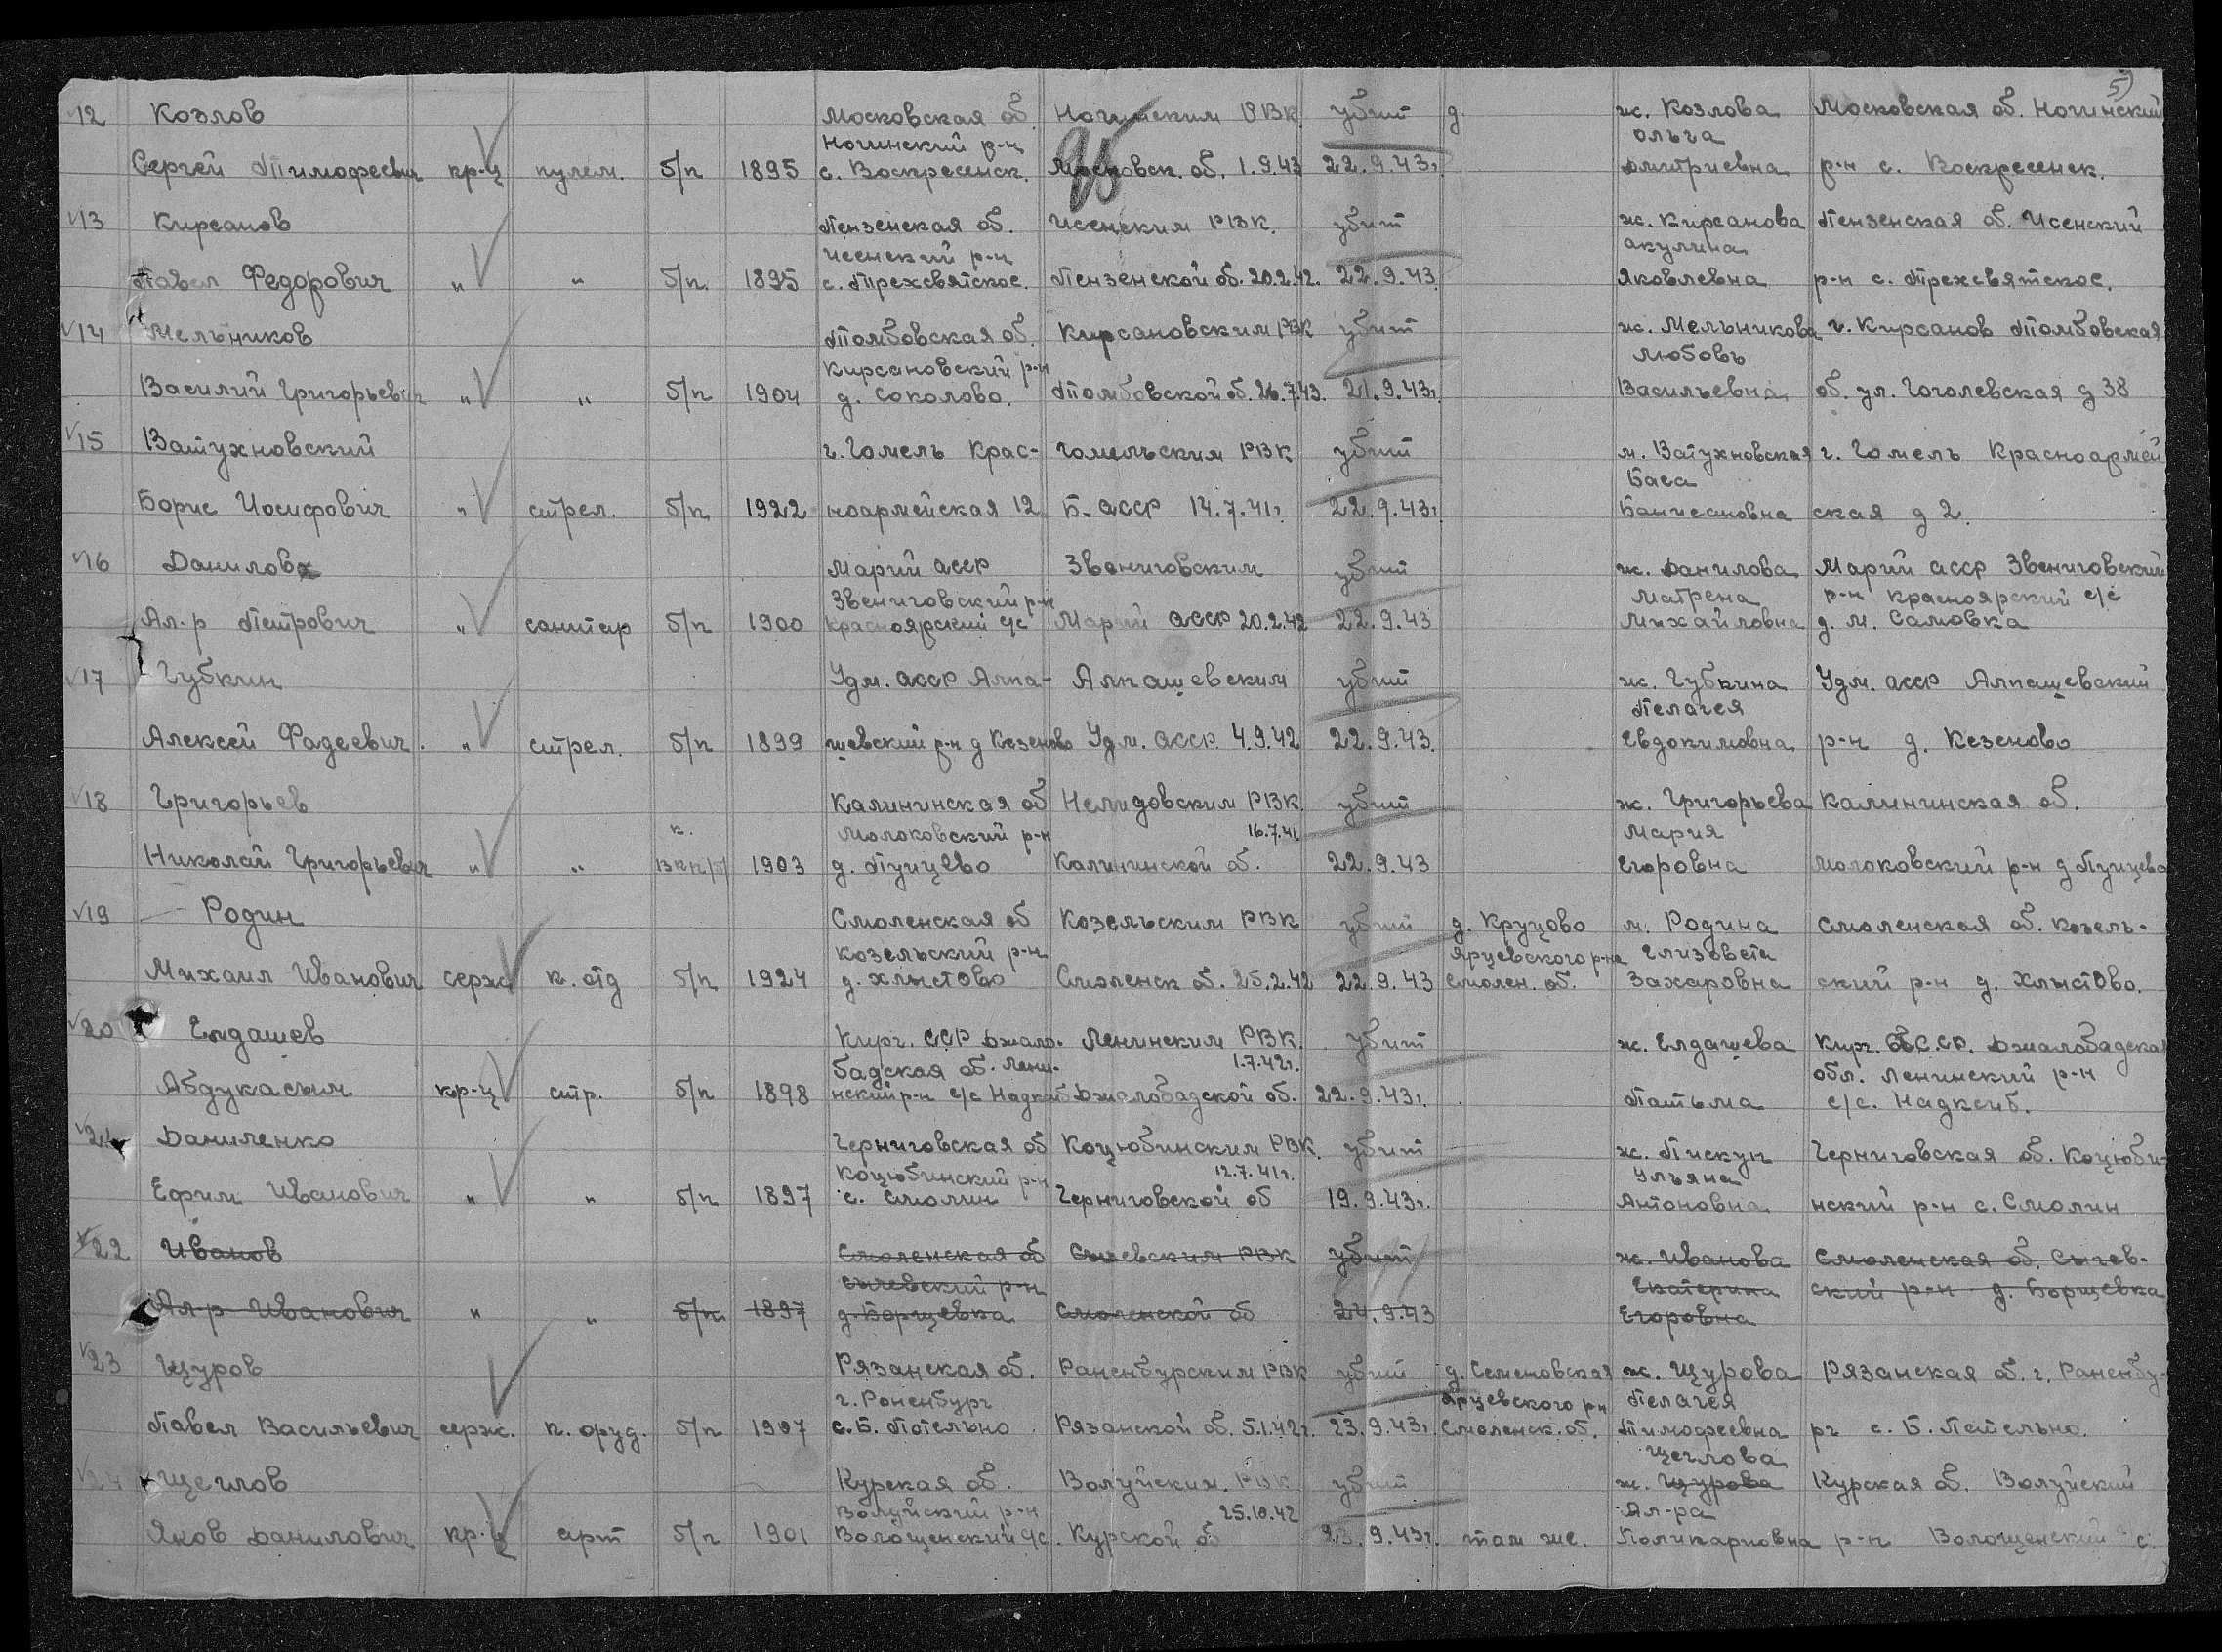 5)
12 Козлов Московская об. Ногинским РВК. убит д. ж. Козлова Московская об. Ногинский
Ногинский р-н Ольга
Сергей Тимофеевич кр-ц пулем. б/п 1895 с. Воскресенск. Московск. об. 1.9.43 22.9.43г. Дмитриевна р-н с. Воскресенск.
13 Кирсанов Пензенская об. Исенским РВК. убит ж. Кирсанова Пензенская об. Исенский
Исенский р-н Акулина
Павел Федорович " " б/п. 1895 с. Трехсвятское. Пензенской об. 20.2.42. 22.9.43 Яковлевна р-н с. Трехсвятское.
14 Мельников Томбовская об. Кирсановским РВК убит ж. Мельникова г. Кирсанов Томбовская
Кирсановский р-н Любовь
Василий Григорьевич " " б/п 1904 д. Соколово. Томбовской об. 26.7.43. 21.9.43г. Васильевна об. ул. Гоголевская д 38
15 Ватухновский г. Гомель Крас- Гомельским РВК убит м. Ватухновская г. Гомель Красноармей
Баса
Борис Иосифович " стрел. б/п 1922 ноармейская 12 Б. АССР 14.7.41г. 22.9.43г. ская д 2.
16 Данилов Марий АССР Звениговским убит ж. Данилова Марий АССР Звениговский
Звениговский р-н Матрена р-н Красноярский с/с
Ал-р Петрович " санитар б/п 1900 Красноярский с/с Марий АССР 20.2.42 22.9.43 Михайловна д. М. Самовка
17 Губкин Удм. АССР Ална- Алнашевским убит ж. Губкина Удм. АССР Алнашевский
Пелагея
Алексей Фадеевич " стрел. б/п 1899 шевский р-н д Кезеново Удм. АССР. 4.9.42 22.9.43. Евдокимовна р-н д. Кезеново
18 Григорьев Калининская об Нелидовским РВК. убит ж. Григорьева Калининская об.
к. Молоковский р-н 16.7.41 Мария
Николай Григорьевич " " ВКП/б/ 1903 д. Пунцево Калининской об. 22.9.43 Егоровна Молоковский р-н д Пунцево
19 Родин Смоленская об Козельским РВК убит д. Круцово м. Родина Смоленская об. Козель-
Козельский р-н Ярцевского р-на Елизовета
Михаил Иванович серж к. отд б/п 1924 д. Хлыстово Смоленск об. 25.2.42 22.9.43 Смолен. об. Захаровна ский р-н д. Хлыстово.
20 Елдашев Кирг. ССР Джало- Ленинским РВК. убит ж. Елдашева Кирг. С.СР. Джалобадская
бадская об. Лени- 1.7.42г. обл. Ленинский р-н
Абдукасым кр-ц стр. б/п 1898 нский р-н с/с Надкиб Джалобадской об. 22.9.43г. Патьма с/с. Надксиб.
21 Даниленко Черниговская об Коцюбинским РВК. убит ж. Пискун Черниговская об. Коцюби-
Коцюбинский р-н 12.7.41г. Ульяна
Ефим Иванович " " б/п 1897 с. Смолин Черниговской об 19.9.43г. Антоновна нский р-н с. Смолин
22 Иванов Смоленская об Сычевским РВК убит ж. Иванова Смоленская об. Сычев-
Сычевский р-н Екатерина ский р-н д. Борщевка
Ал-р Иванович " " б/п. 1897 д. Борщевка Смоленской об 24.9.43 Егоровна
23 Щуров Рязанская об. Раненбурским РВК убит д. Семеновская ж. Щурова Рязанская об. г. Раненбу-
г. Раненбург Ярцевского р-н Пелагея
Павел Васильевич серж. к. оруд. б/п 1907 с. Б. Петельно Рязанской об. 5.1.42г. 23.9.43г. Смоленск. об. Тимофеевна рг с. Б. Петельно.
Щеглова
24 Щеглов Курская об. Волуйским. РВК убит ж. Щурова Курская об. Волуйский
Волуйский р-н 25.10.42 Ал-ра
Яков Данилович кр-ц арт б/п 1901 Волощенский с/с. Курской об 23.9.43г. там же. Поликарповна р-н Волощенский с.